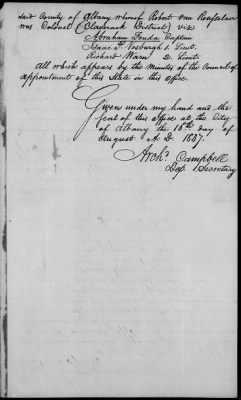 said County of Albany whereof Robert Van Renselaer
was Colonel (Claverack District) viz
Abraham Fonda Captain
Isaac P. Vosburgh 1. Lieut.
Richard Warn 2. Lieut.
All which appears by the Minutes of the Council of
appointment of this State in this office.
Given under my hand and the
seal of this office at the City
of Albany the 18th day of
August A. D. 1837.
Archd. Campbell
Dep. Secretary